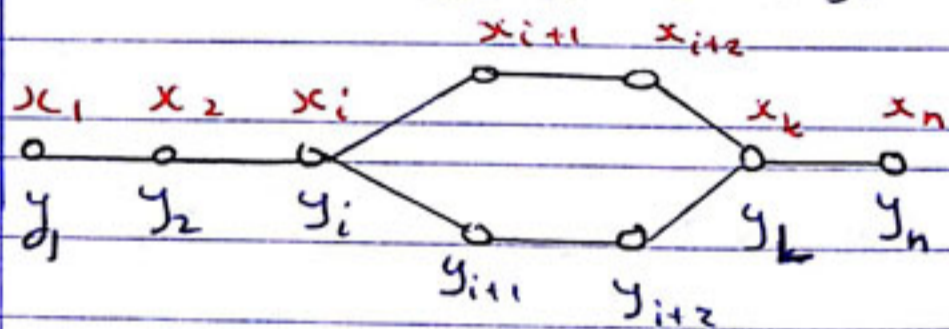 x_{i+1} x_{i+2}
x_1 x_2 x_i x_k x_n
y_1 y_2 y_i y_k y_n
y_{i+1} y_{i+2}